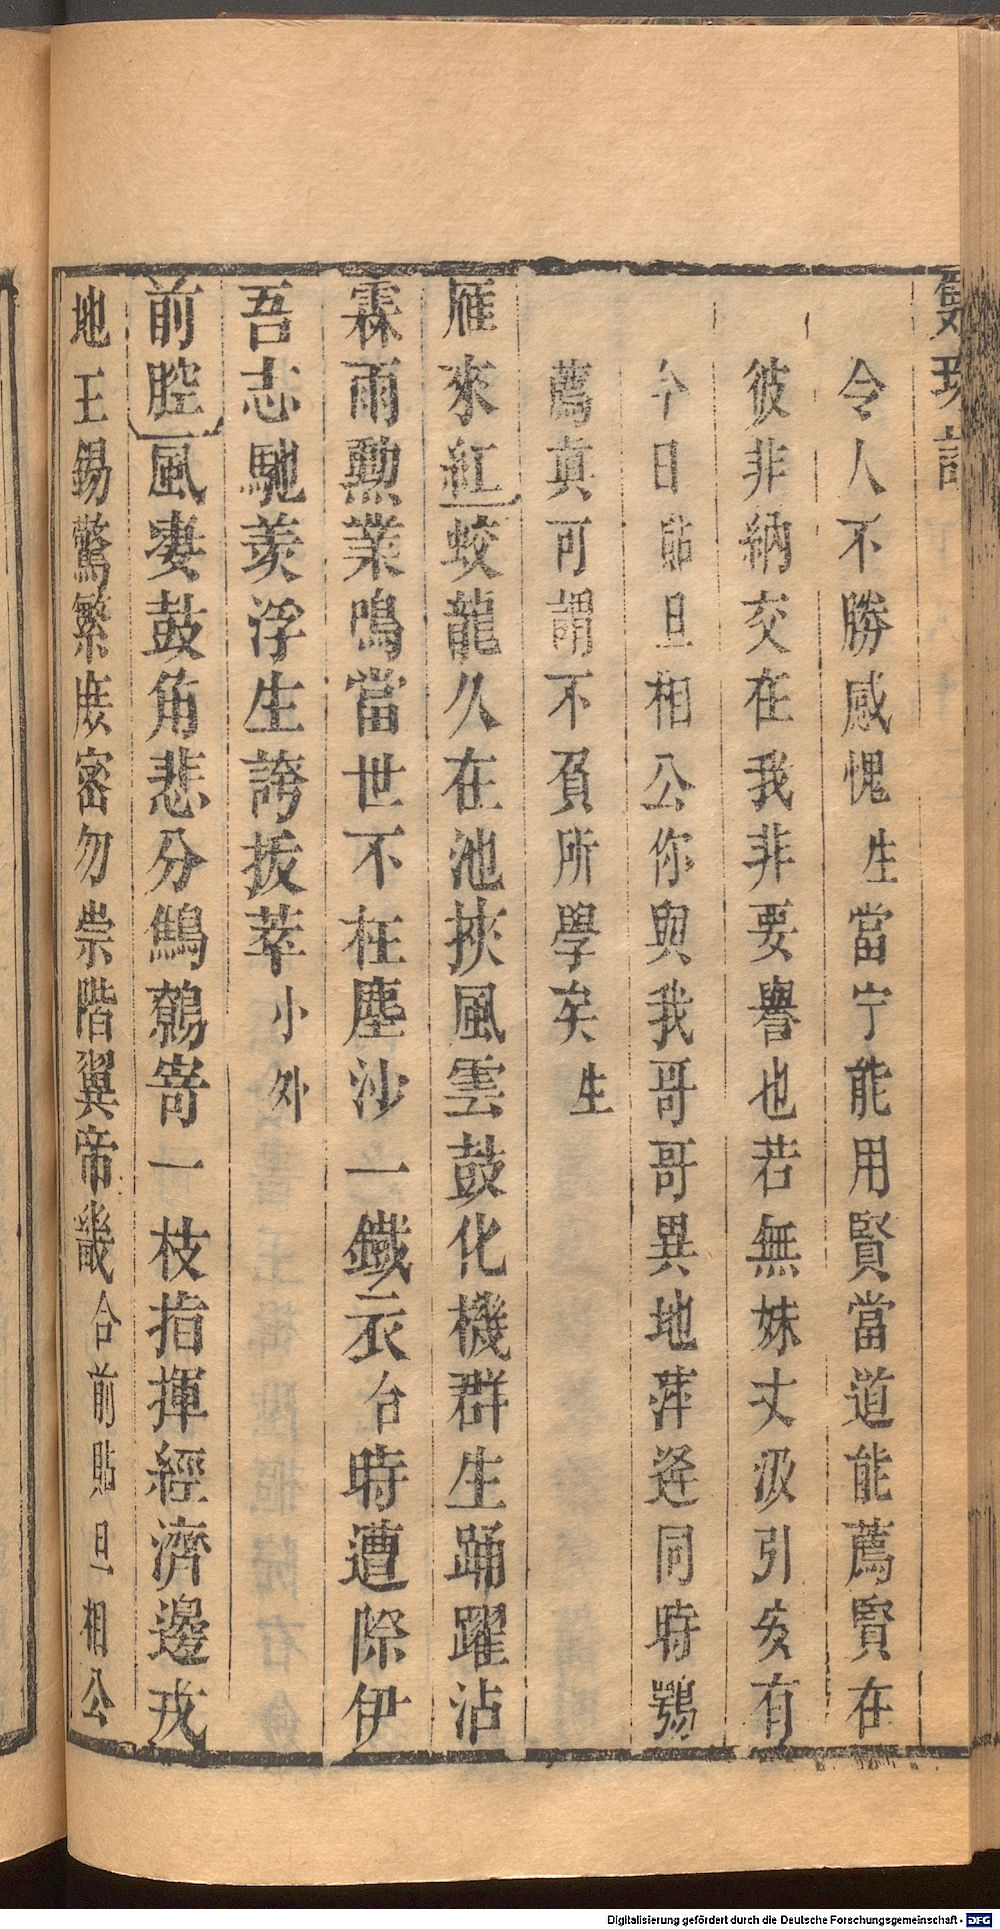 雙珠記
令人不勝感愧生當宁能用賢當道能薦賢在
彼非納交在我非要譽也若無妹丈汲引安有
今日貼旦相公你與我哥哥異地萍逢同時鶚
薦真可謂不負所學矣生
雁來紅蛟龍久在池挾風雲鼓化機群生踊躍沾
霖雨勳業鳴當世不在塵沙一鐵衣台時遭際伊
吾志馳羨浮生誇拔萃小外
前腔風妻鼓角悲分鷦鷯寄一枝指揮經濟邊戎
地王錫驚繁庶密勿崇階翼帝畿合前貼旦相公
Digitalisierung gefördert durch die Deutsche Forschungsgemeinschaft - DFG